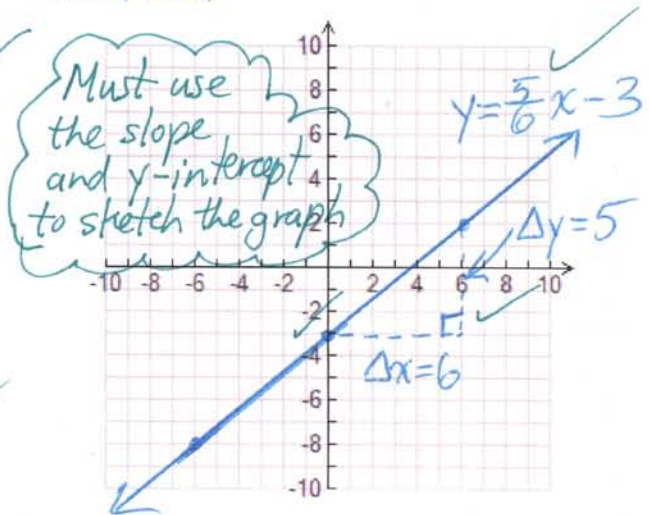 Must use
the slope
and y-intercept
to sketch the graph
y=5/6 x-3
Δy=5
Δx=6
10
8
6
4
2
-10 -8 -6 -4 -2 0 2 4 6 8 10
-2
-4
-6
-8
-10